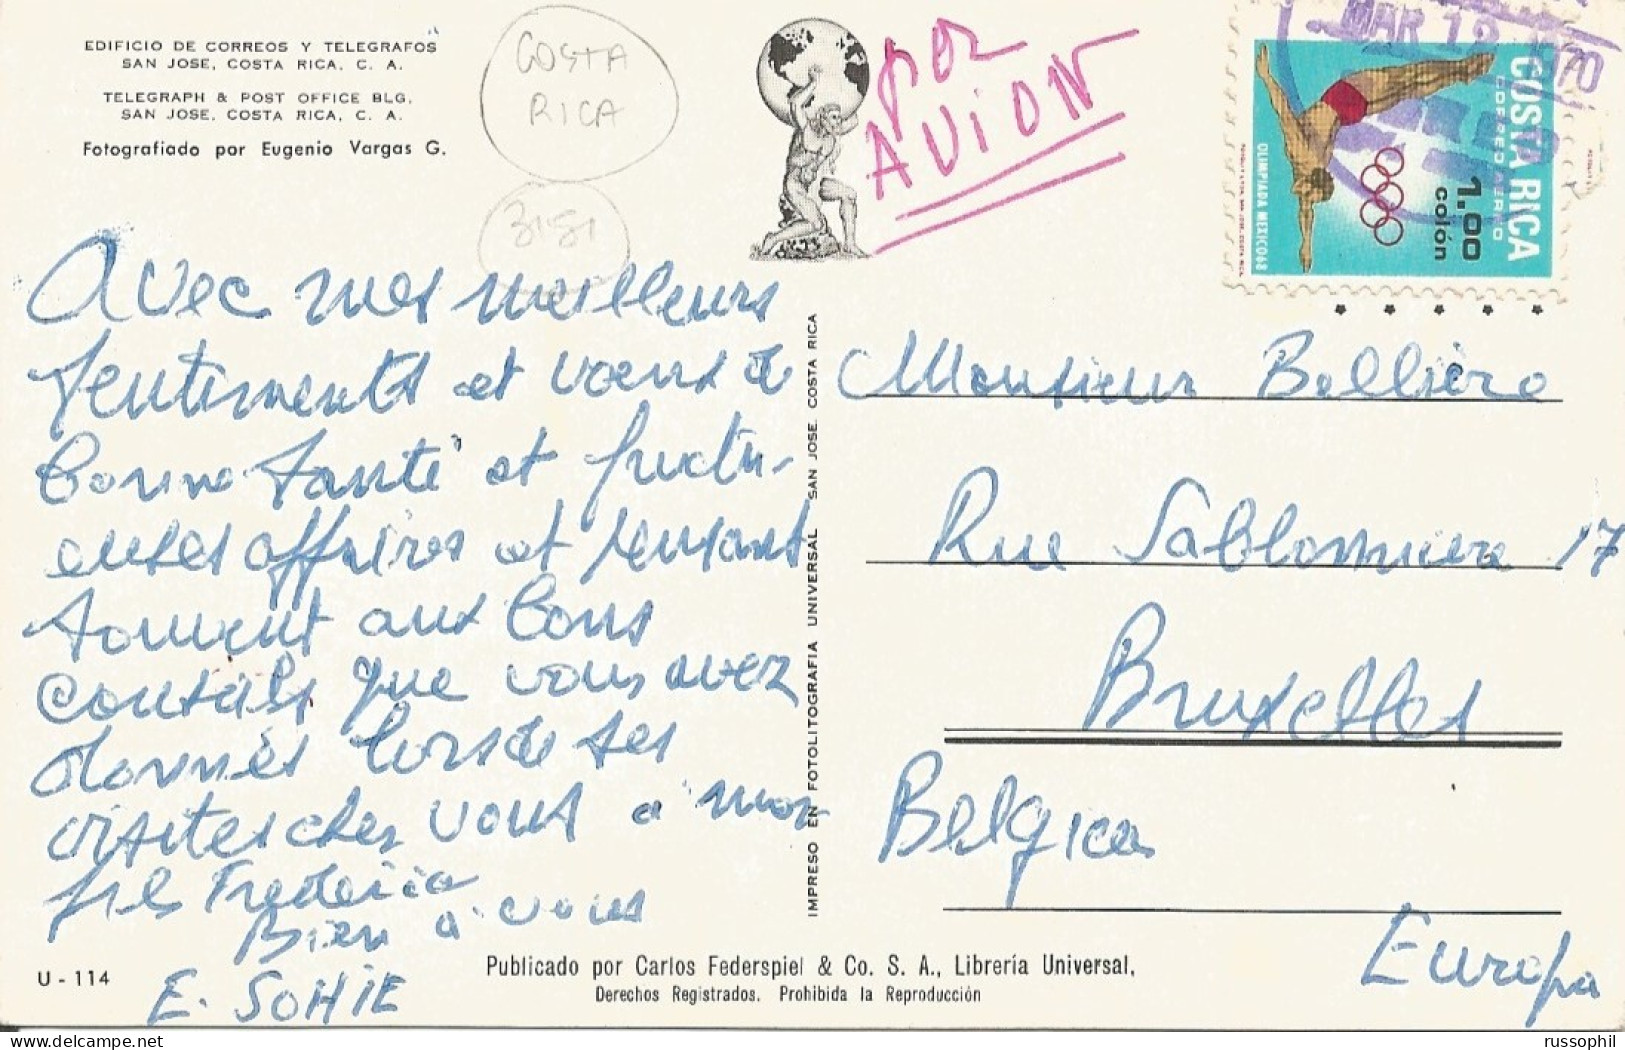 EDIFICIO DE CORREOS Y TELEGRAFOS
SAN JOSE, COSTA RICA, C. A.
TELEGRAPH & POST OFFICE BLG.
SAN JOSE, COSTA RICA, C. A.
Fotografiado por Eugenio Vargas G.
COSTA
RICA
3151
por
AVION
MAR 18 1970
COSTA RICA
CORREO AEREO
1.00
colón
OLIMPIADA MEXICO 68
Avec mes meilleurs
sentiments et voeux de
bonne santé et fructu-
euses affaires et pensant
souvent aux bons
conseils que vous avez
donnés lors de ses
visites chez vous a mon
fils Frederic
Bien a vous
E. SOHIE
IMPRESO EN FOTOLITOGRAFIA UNIVERSAL SAN JOSE, COSTA RICA
Monsieur Bellière
Rue Sablonniere 17
Bruxelles
Belgica
Europa
U - 114
Publicado por Carlos Federspiel & Co. S. A., Librería Universal,
Derechos Registrados. Prohibida la Reproducción
russophil
www.delcampe.net